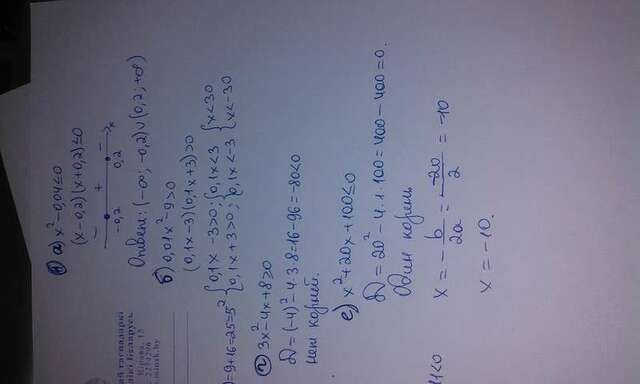 а) x²-0,04≤0
(x-0,2)(x+0,2)≤0
- + -
-0,2 0,2 x
Ответ: (-∞; -0,2)∪(0,2; +∞)
б) 0,01x²-9>0
(0,1x-3)(0,1x+3)>0
{0,1x-3>0; {0,1x<3 {x<30
{0,1x+3>0; {0,1x<-3 {x<-30
=9+16=25=5²
г) 3x²-4x+8≥0
D=(-4)²-4·3·8=16-96=-80<0
нет корней.
е) x²+20x+100≤0
D=20²-4·1·100=400-400=0.
Один корень
x=-b/2a=-20/2=-10
x=-10.